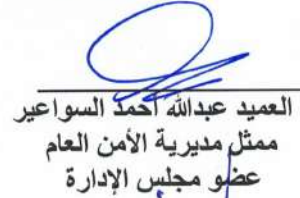 العميد عبدالله أحمد السواعير
ممثل مديرية الأمن العام
عضو مجلس الإدارة